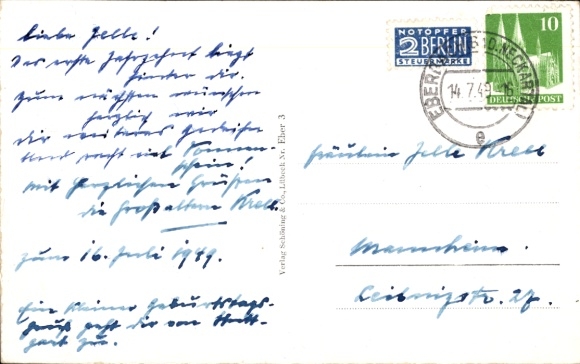 Liebe Jelle!
Das erste Jahrzehnt liegt
hinter dir.
Zum nächsten wünschen
herzlich wir
dir weiteres Gedeihen
Und recht viel Sonnen-
schein!
Mit herzlichen Grüßen
die Großeltern Krell.
Zum 16. Juli 1949.
Ein kleiner Geburtstags-
gruß geht dir von Stutt-
gart zu.
Verlag Schöning & Co., Lübeck Nr. Eber 3
NOTOPFER
2 BERLIN
STEUERMARKE
10
DEUTSCHE POST
14.7.49
e
Fräulein Jelle Krell
Mannheim.
Leibnizstr. 27.